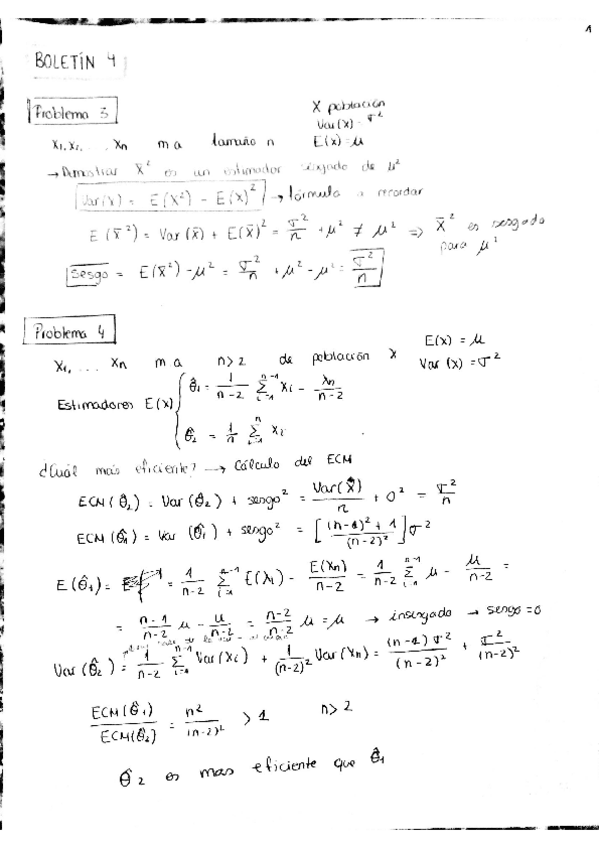 1
BOLETÍN 4
Problema 3
X población
Var(X) = σ²
x₁, x₂, ... xn m a tamaño n E(X) = μ
→ Demostrar X̄² es un estimador sesgado de μ²
Var(X) = E(X²) - E(X)² → fórmula a recordar
E(X̄²) = Var(X̄) + E(X̄)² = σ²/n + μ² ≠ μ² ⇒ X̄² es sesgado para μ²
Sesgo = E(X̄²) - μ² = σ²/n + μ² - μ² = σ²/n
Problema 4
x₁, ... xn m a n>2 de población X E(X) = μ
Var(X) = σ²
Estimadores E(X) { θ̂₁ = 1/(n-2) Σ_{i=1}^{n-1} xi - xn/(n-2)
θ̂₂ = 1/n Σ_{i=1}^{n} xi
¿Cuál mas eficiente? → Cálculo del ECM
ECM(θ̂₂) = Var(θ̂₂) + sesgo² = Var(X)/n + 0² = σ²/n
ECM(θ̂₁) = Var(θ̂₁) + sesgo² = [((n-1)² + 1)/(n-2)²] σ²
E(θ̂₁) = = 1/(n-2) Σ_{i=1}^{n-1} E(xi) - E(xn)/(n-2) = 1/(n-2) Σ_{i=1}^{n-1} μ - μ/(n-2) =
= (n-1)/(n-2) μ - μ/(n-2) = (n-2)/(n-2) μ = μ → insesgado → sesgo = 0
Var(θ̂₂) = 1/(n-2) Σ_{i=1}^{n-1} Var(xi) + 1/(n-2)² Var(xn) = (n-1)σ²/(n-2)² + σ²/(n-2)²
ECM(θ̂₁)/ECM(θ̂₂) = n²/(n-2)² > 1 n>2
θ̂₂ es mas eficiente que θ̂₁